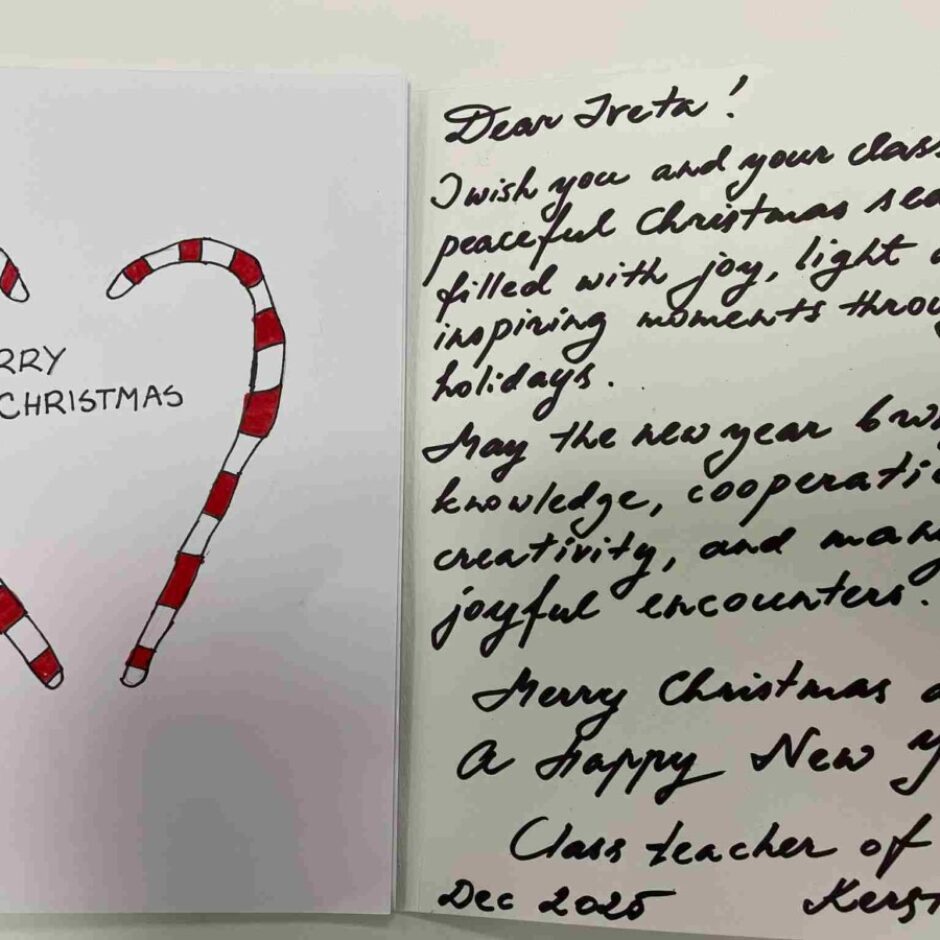 RRY
CHRISTMAS
Dear Ireta!
I wish you and your class
peaceful Christmas sea
filled with joy, light a
inspiring moments throu
holidays.
May the new year bri
knowledge, cooperatio
creativity, and many
joyful encounters.
Merry Christmas a
A Happy New Y
Class teacher of
Dec 2025 Kers